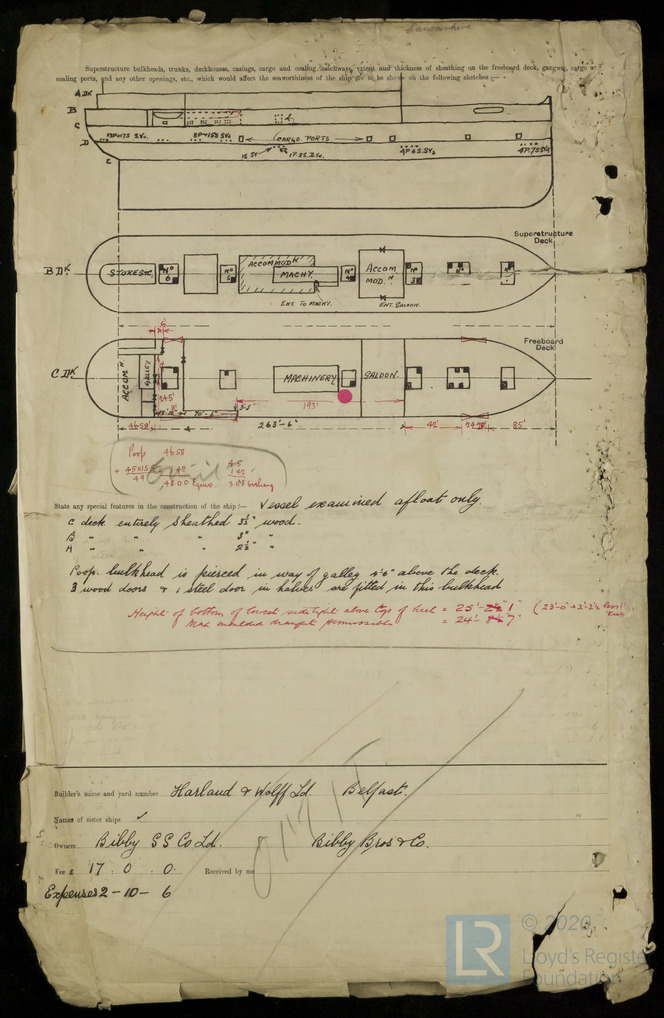 Superstructure bulkheads, trunks, deckhouses, casings, cargo and coaling hatchways, extent and thickness of sheathing on the freeboard deck, gangway, cargo
coaling ports, and any other openings, etc., which would affect the seaworthiness of the ship are to be shewn on the following sketches:—
A DK
B
C
D
E
CARGO PORTS
Superstructure
Deck
B DK
STORES &c.
No 6
No 5
ACCOMMODn
MACHY.
No 4
Accom
MODn
No 3
No 2
No 1
ENT TO MACHY.
ENT. SALOON.
Freeboard
Deck
C DK
ACCOMn
GALLEY
MACHINERY
SALOON.
24.5'
5.5'
193'
46.58'
263'-6"
42'
85'
Poop 46.58
+ 45x15 1.42
49 48.00 Equiv.
4.5
1.42
3.08 overhang
State any special features in the construction of the ship :— Vessel examined afloat only.
C deck entirely sheathed 3½" wood.
B " " " 3" "
A " " " 2½" "
Poop. bulkhead is pierced in way of galley 4'-6" above the deck.
3 wood doors & 1 steel door in halves are fitted in this bulkhead
Height of bottom of lowest sidelight above top of keel = 25'-1"
Max moulded draught permissible = 24'-7"
Builder's name and yard number Harland & Wolff Ld. Belfast.
Names of sister ships ✓
Owners Bibby SS Co Ld. Bibby Bros & Co.
Fee £ 17 . 0 . 0. Received by me
Expenses 2-10-6
© 2020
LR Lloyd's Register
Foundation